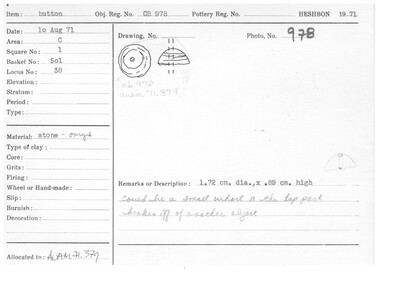 Item: button Obj. Reg. No. OB 978 Pottery Reg. No. HESHBON 1971
Date: 10 Aug 71
Area: C
Square No: 1
Basket No: Sol
Locus No: 38
Elevation:
Stratum:
Period:
Type:
Drawing, No.
Photo, No. 978
Cab 978
aum 71.379
Material: stone - onyx
Type of clay:
Core:
Grits:
Firing:
Wheel or Hand-made:
Slip:
Burnish:
Decoration:
Allocated to: AUAM 71.379
Remarks or Description: 1.72 cm. dia., x .89 cm. high
Could be a small whorl or the top part
broken off of another object